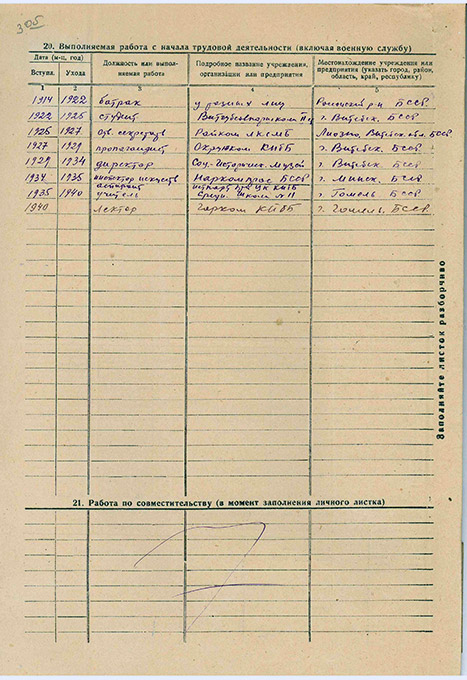 305
20. Выполняемая работа с начала трудовой деятельности (включая военную службу)
Дата (м-ц, год)
Вступл. Ухода
Должность или выполняемая работа
Подробное название учреждения, организации или предприятия
Местонахождение учреждения или предприятия (указать город, район, область, край, республику)
1 2 3 4 5
1914 1922 батрак у разных лиц р-н БССР
1922 1925 студент г. Витебск. БССР
1926 1927 секретарь Райком ЛКСМБ Лиозно, Витебск. обл. БССР
1927 1929 пропагандист Окружком КПбБ г. Витебск. БССР
1929 1934 директор Соц.-Историч. Музей г. Витебск. БССР
1934 1935 инспектор искусств Наркомпрос БССР г. Минск. БССР
аспирант ЦК КПбБ
1935 1940 учитель Средн. школа N 11 г. Гомель БССР
1940 лектор Горком КПбБ г. Гомель, БССР
Заполняйте листок разборчиво
21. Работа по совместительству (в момент заполнения личного листка)